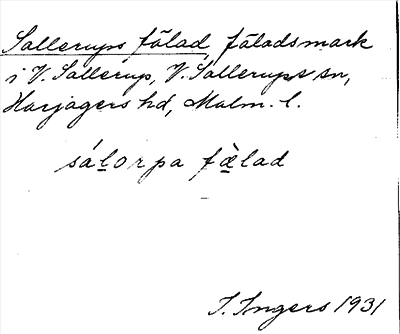 Sallerups fälad, fäladsmark
i V. Sallerup, V. Sallerups sn,
Harjagers hd, Malm. l.
sálorpa fæ̀lad
I. Ingers 1931